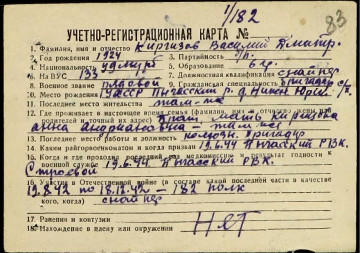 1/182
83
УЧЕТНО-РЕГИСТРАЦИОННАЯ КАРТА №
1. Фамилия, имя и отчество Киргизов Василий Дмитр.
2. Год рождения 1924 3. Партийность б/п.
4. Национальность удмурт 5. Образование 6 кл.
6. № ВУС 133 7. Должностная квалификация снайпер
8. Военное звание рядовой 9.
10. Место рождения УАССР Пычасский р.
11. Последнее место жительства там-же
12. Где проживает в настоящее время семья (фамилия, имя и отчество) жены или родителей и точный их адрес)
анна Андриановна - там же
13. Последнее место работы и должность колхоз. бригадир
14. Каким райгорвоенкоматом и когда призван 19.6.44 Пычасский РВК.
15. Когда и где проходил последний раз медкомиссию и результат годности к военной службе 19.6.44 Пычасский РВК.
Строевой
16. Участие в Отечественной войне (в составе какой последней части в качестве кого, когда) 19.8.42 по 18.12.42 - 182 полк
снайпер
17. Ранения и контузии
18. Нахождение в плену или окружении Нет